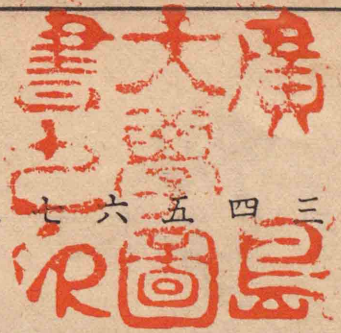 廣島
大學圖
書之印
三
四
五
六
七